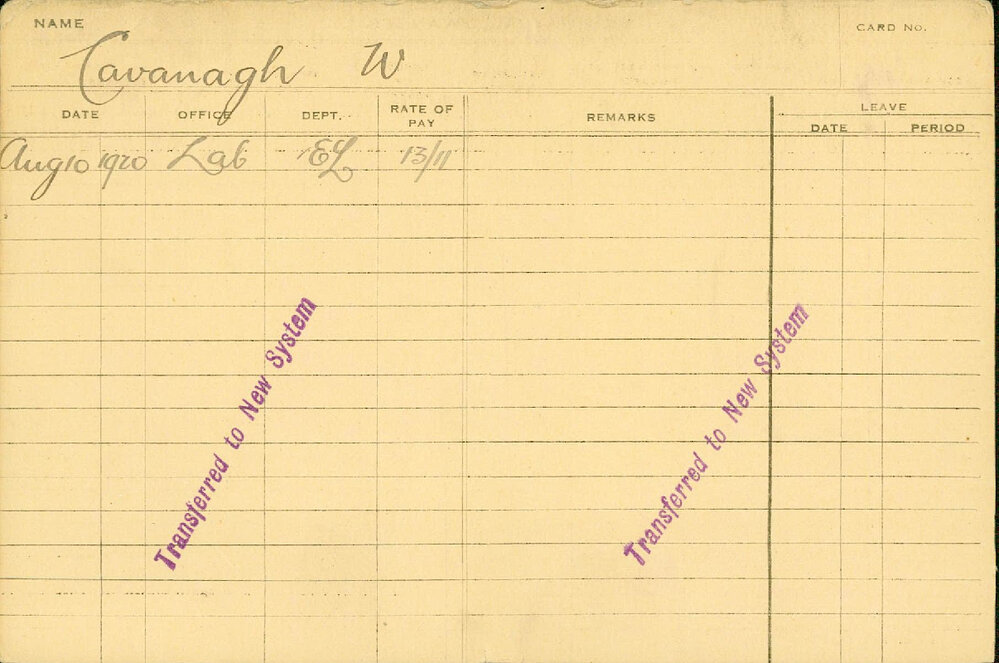 NAME
CARD NO.
Cavanagh W
DATE OFFICE DEPT. RATE OF PAY REMARKS LEAVE
DATE PERIOD
Aug 10 1920 Lab EL 13/11
Transferred to New System
Transferred to New System